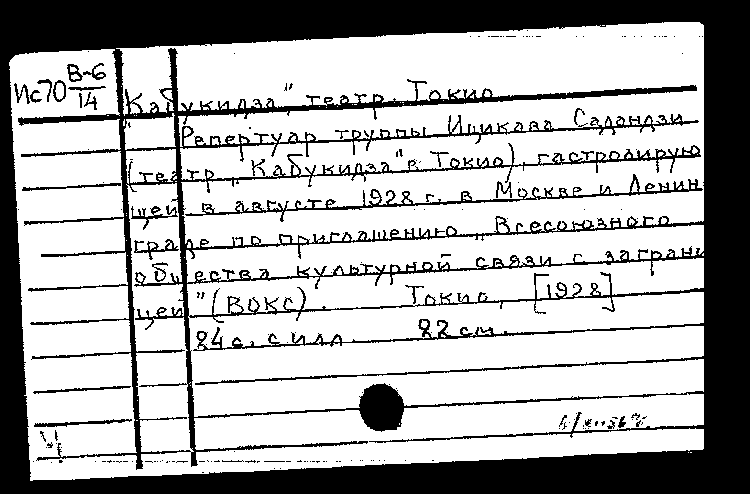 Ис70 В-6
14
"Кабукидза", театр. Токио
Репертуар труппы Ицикава Садандзи
(театр „Кабукидза" в Токио), гастролирую
щей в августе 1928 г. в Москве и Ленин
граде по приглашению „Всесоюзного
общества культурной связи с заграни
цей" (ВОКС). Токио, [1928]
24 с. с илл. 22 см.
Ч